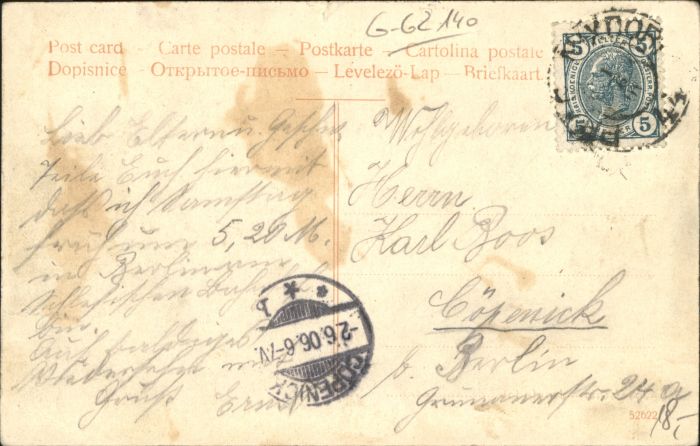 G-GZ 140
Post card – Carte postale – Postkarte – Cartolina postale
Dopisnice – Открытое-письмо – Levelezö-Lap – Briefkaart.
5 5
5 5
44
Lieb Eltern u. Geschw.
Teile Euch hiermit
daß ich Samstag
früh um 5,20 M.
in Berlin
Schlesischen Bahnh.
bin.
Auf baldiges
Wiedersehn
Gruß Ernst
Wohlgeboren
Herrn
Karl Boos
Cöpenick
b. Berlin
Grünauerstr. 24 a
* * 1
-2.6.06.6-7V.
CÖPENICK
52622
18,-